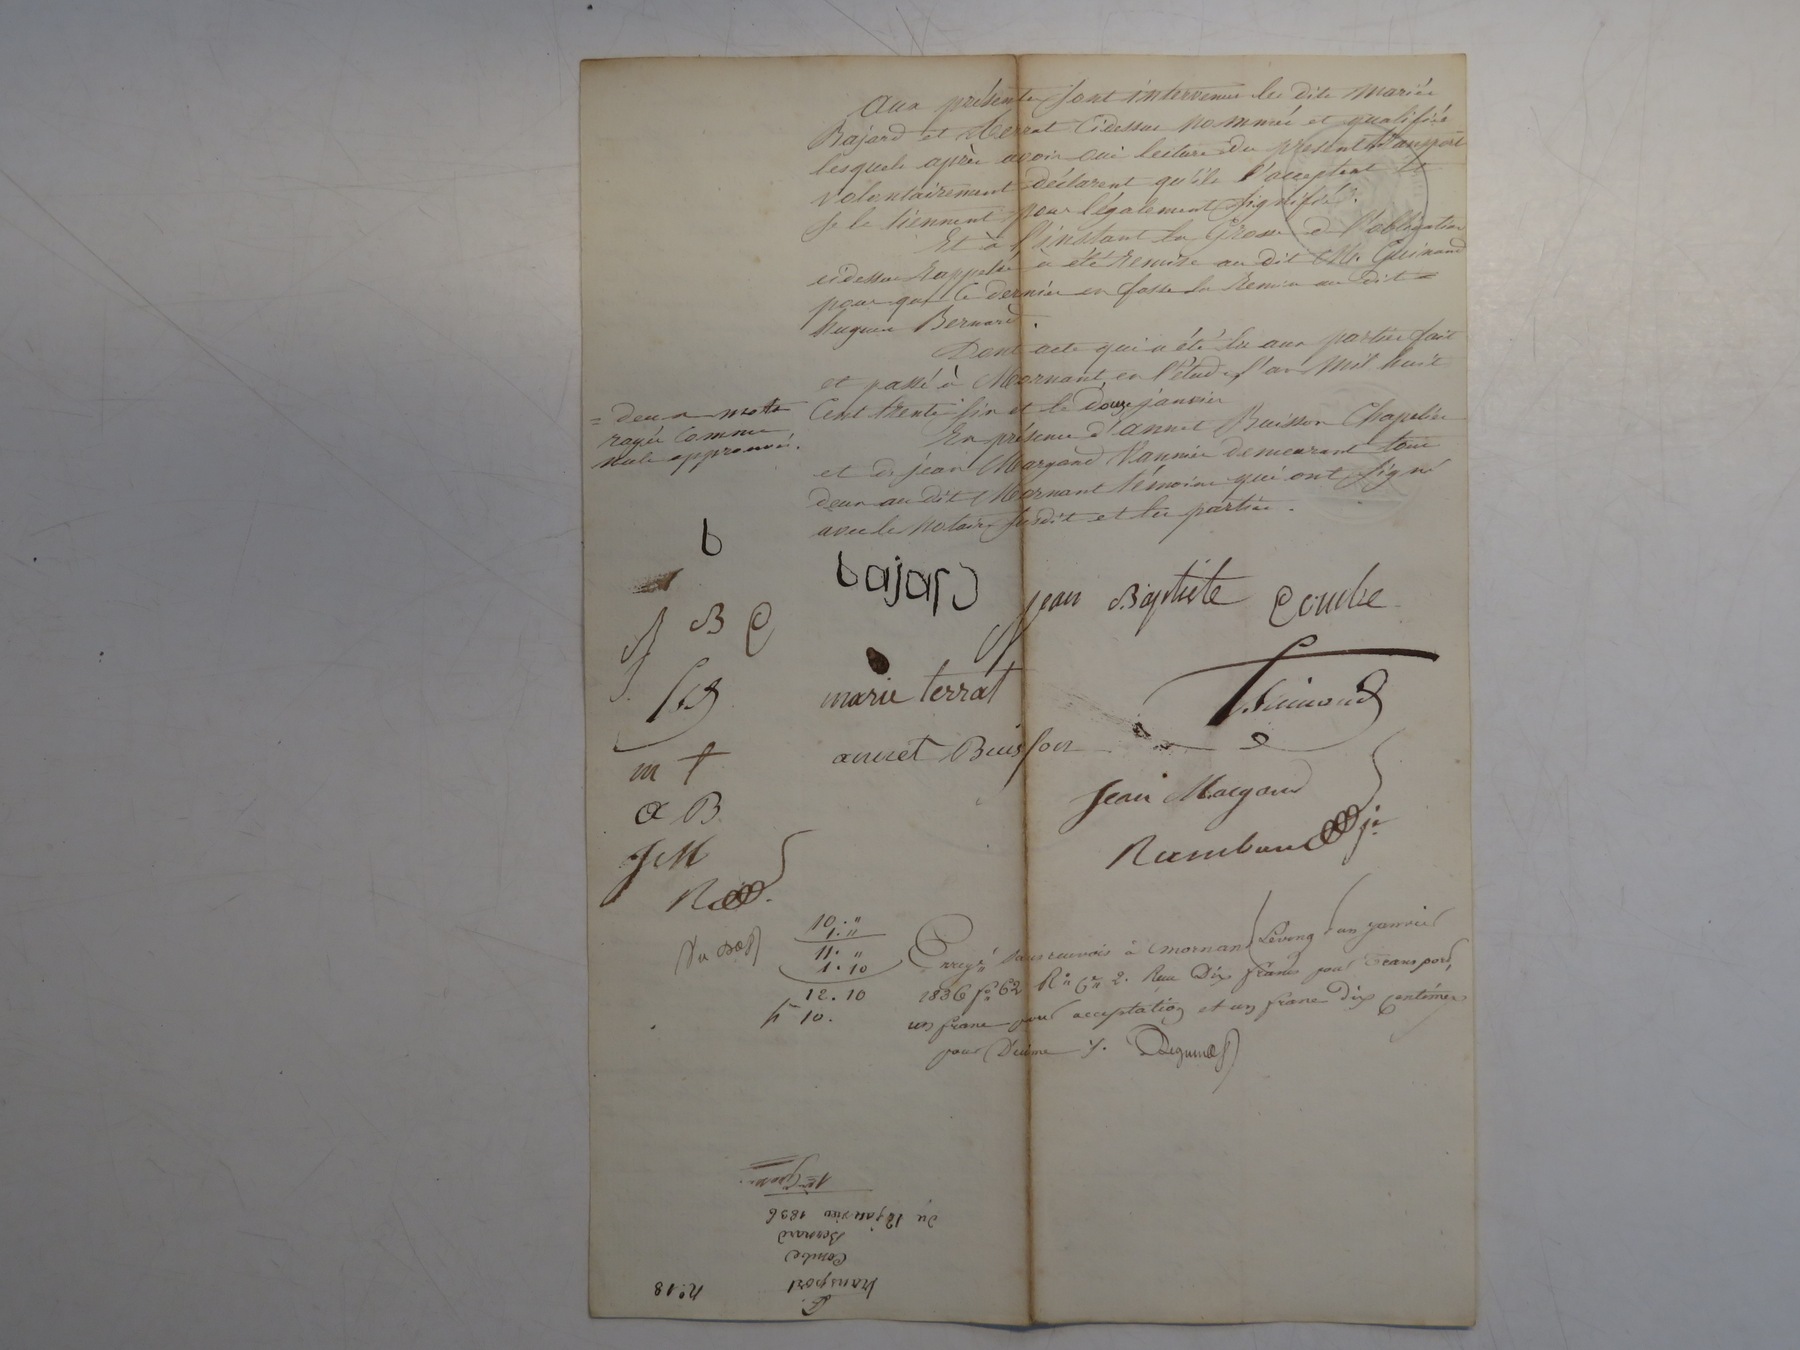 Aux présentes sont intervenus les dits mariés
Bajard et Terrat cidessus nommés et qualifiés
lesquels après avoir oui lecture du présent transport
volontairement déclarent qu'ils l'acceptent et
se le tiennent pour légalement signifié.
Et à l'instant la Grosse de l'obligation
cidessus rappelée à été remise au dit Me. Guinand
pour que ce dernier en fasse la remise au dit =
hugues Bernard.
Dont acte qui a été lu aux parties fait
et passé à Mornant en l'étude l'an mil huit
Cent trente six et le Douze janvier
= deux mots
rayés comme
nuls approuvés.
En présence d'annet Buisson Chapelier
et de jean Margand Vannier demeurant tous
deux au dit Mornant témoins qui ont signé
avec le Notaire susdit et les parties.
b
bajard
jean Baptiste Combe
J B C
marie terrat
Guinand
annet Buisson
m t
Jean Margand
a B
J M
Rambaud je
10. "
1. "
11. "
1. 10
12. 10
10.
Enregé sans renvois à Mornant le vingt un janvier
1836 fo 62 Ro Ces 2. Reçu Dix francs pour Transport,
un franc pour acceptation et un franc dix centimes
pour Décime
n° 18
transport
Combe
Bernard
du 12 janvier 1836
1ere Grosse.